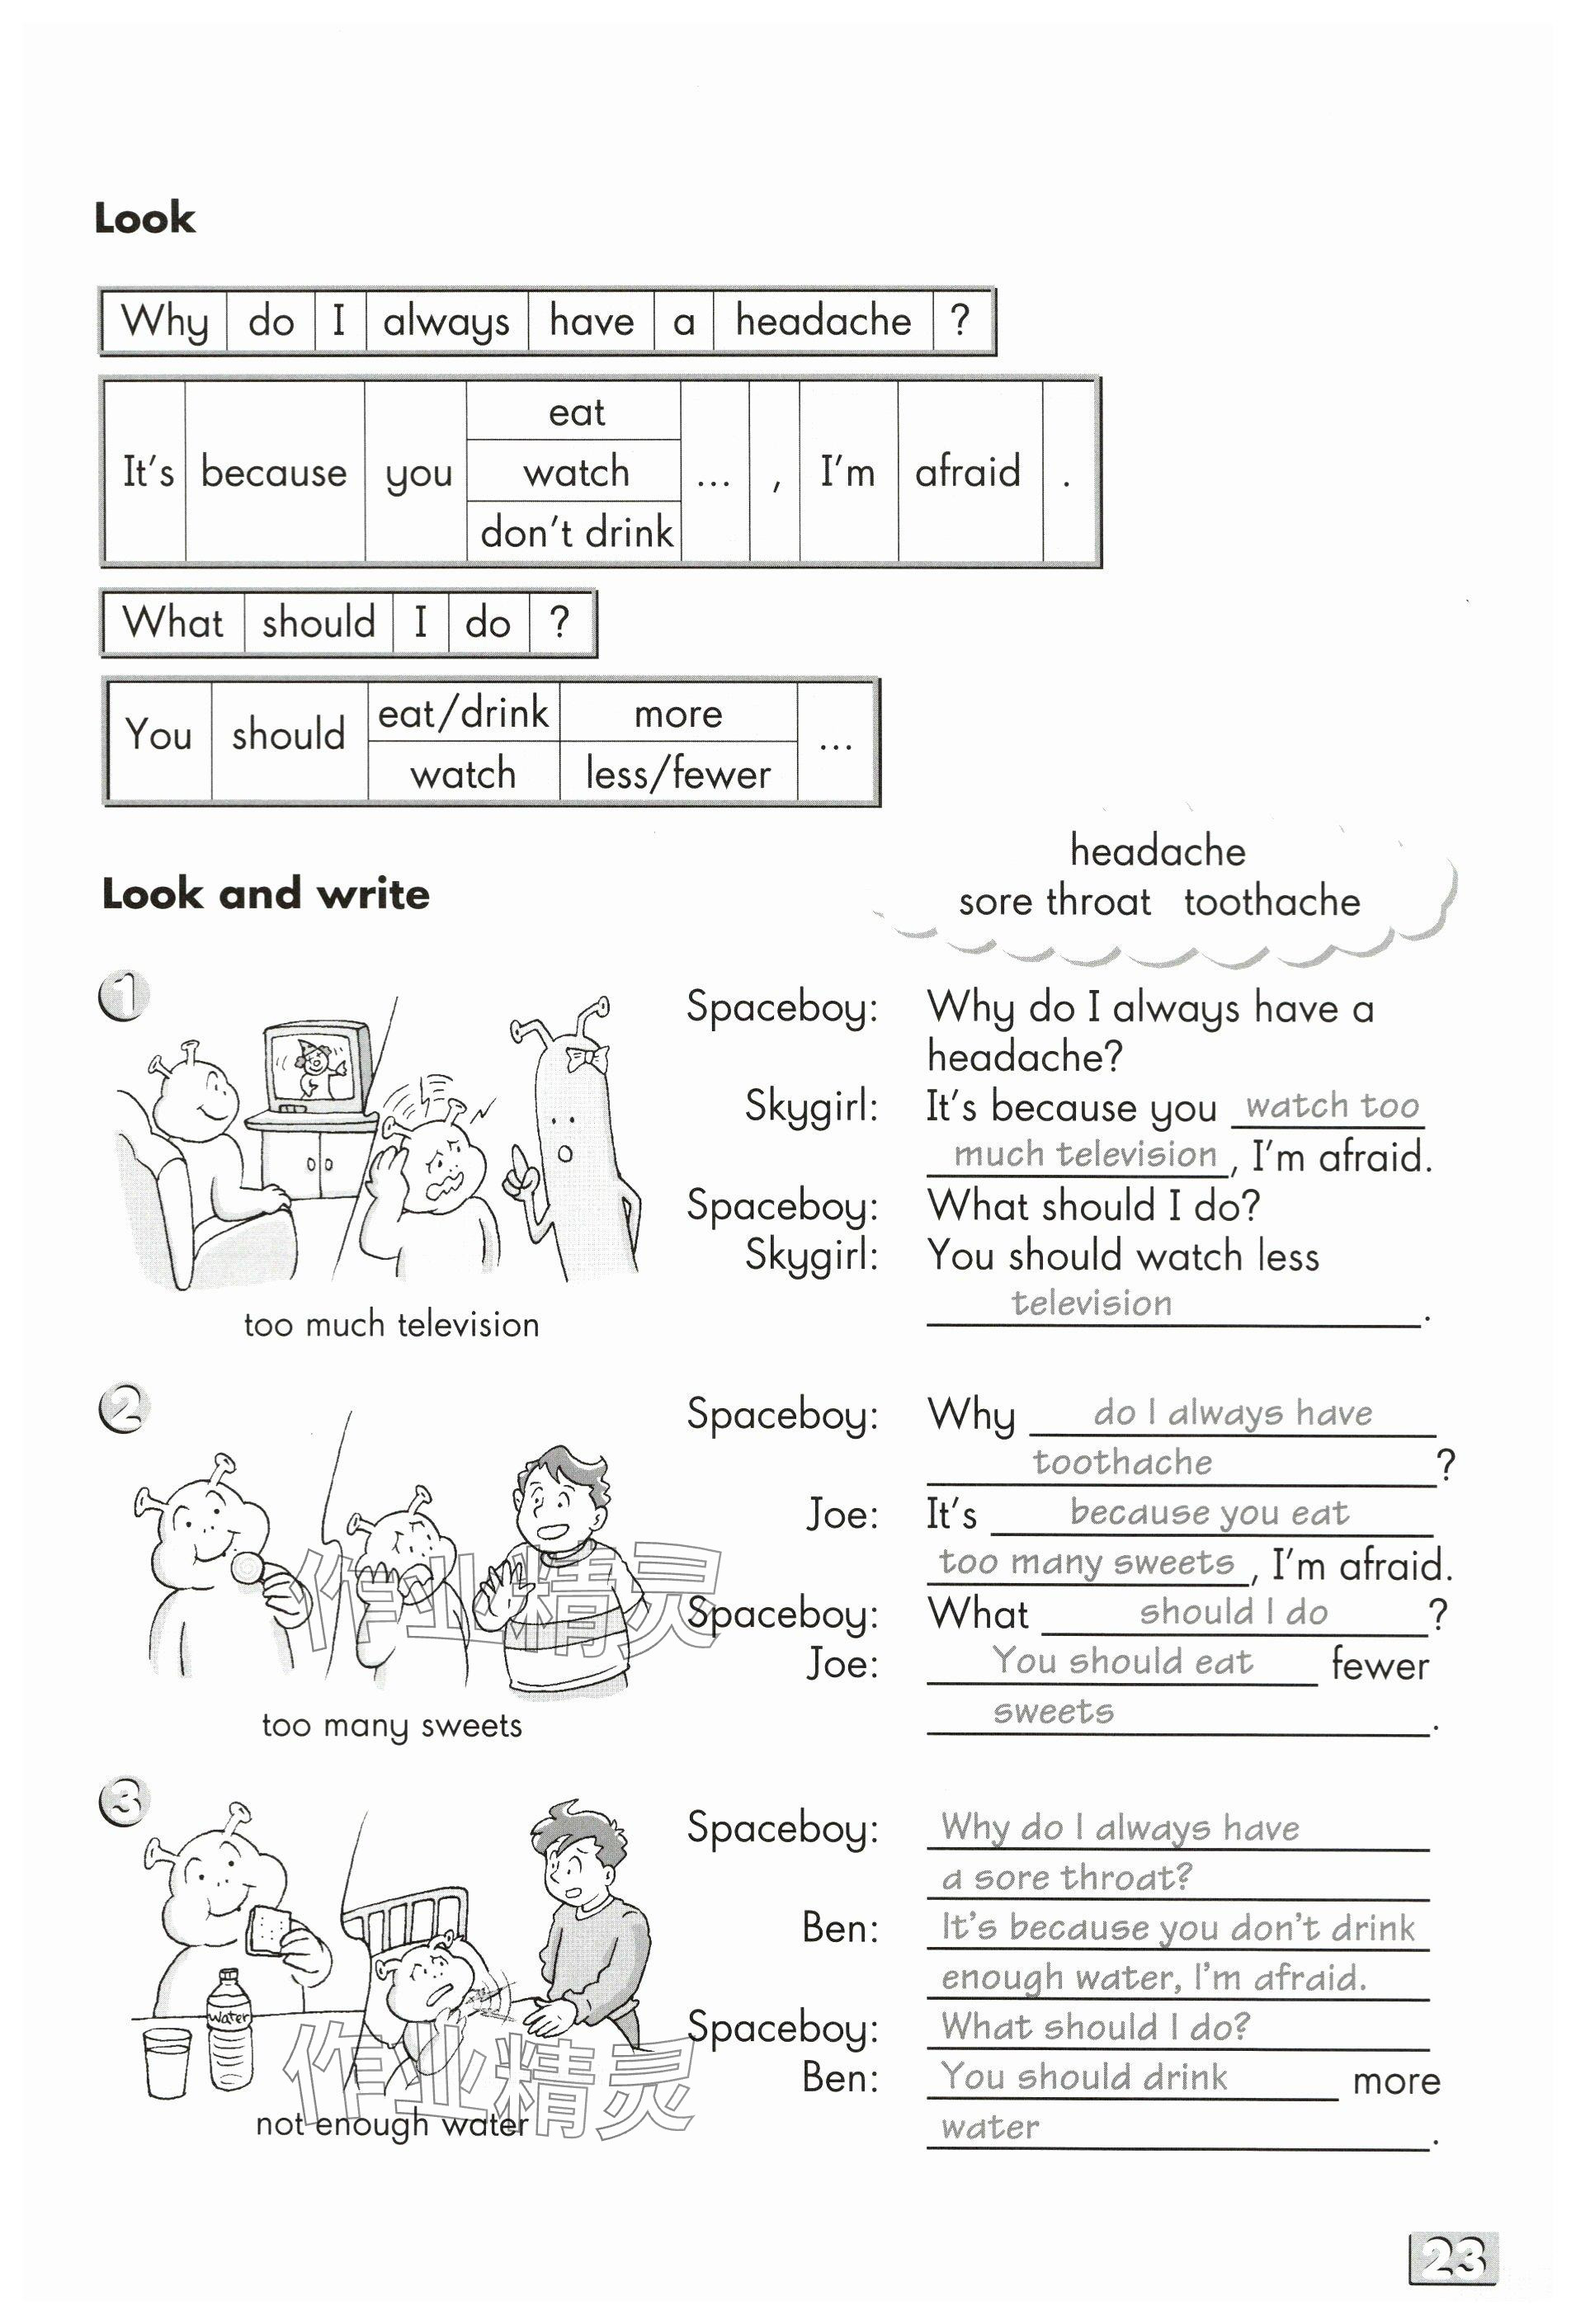 Look
Why do I always have a headache ?
eat
It's because you watch ... , I'm afraid .
don't drink
What should I do ?
You should eat/drink more ...
watch less/fewer
headache
sore throat toothache
Look and write
1
Spaceboy: Why do I always have a
headache?
Skygirl: It's because you watch too
much television, I'm afraid.
Spaceboy: What should I do?
Skygirl: You should watch less
television.
too much television
2
Spaceboy: Why do I always have
toothache?
Joe: It's because you eat
too many sweets, I'm afraid.
Spaceboy: What should I do?
Joe: You should eat fewer
sweets.
too many sweets
作业精灵
3
Spaceboy: Why do I always have
a sore throat?
Ben: It's because you don't drink
enough water, I'm afraid.
Spaceboy: What should I do?
Ben: You should drink more
water.
Water
not enough water
作业精灵
23